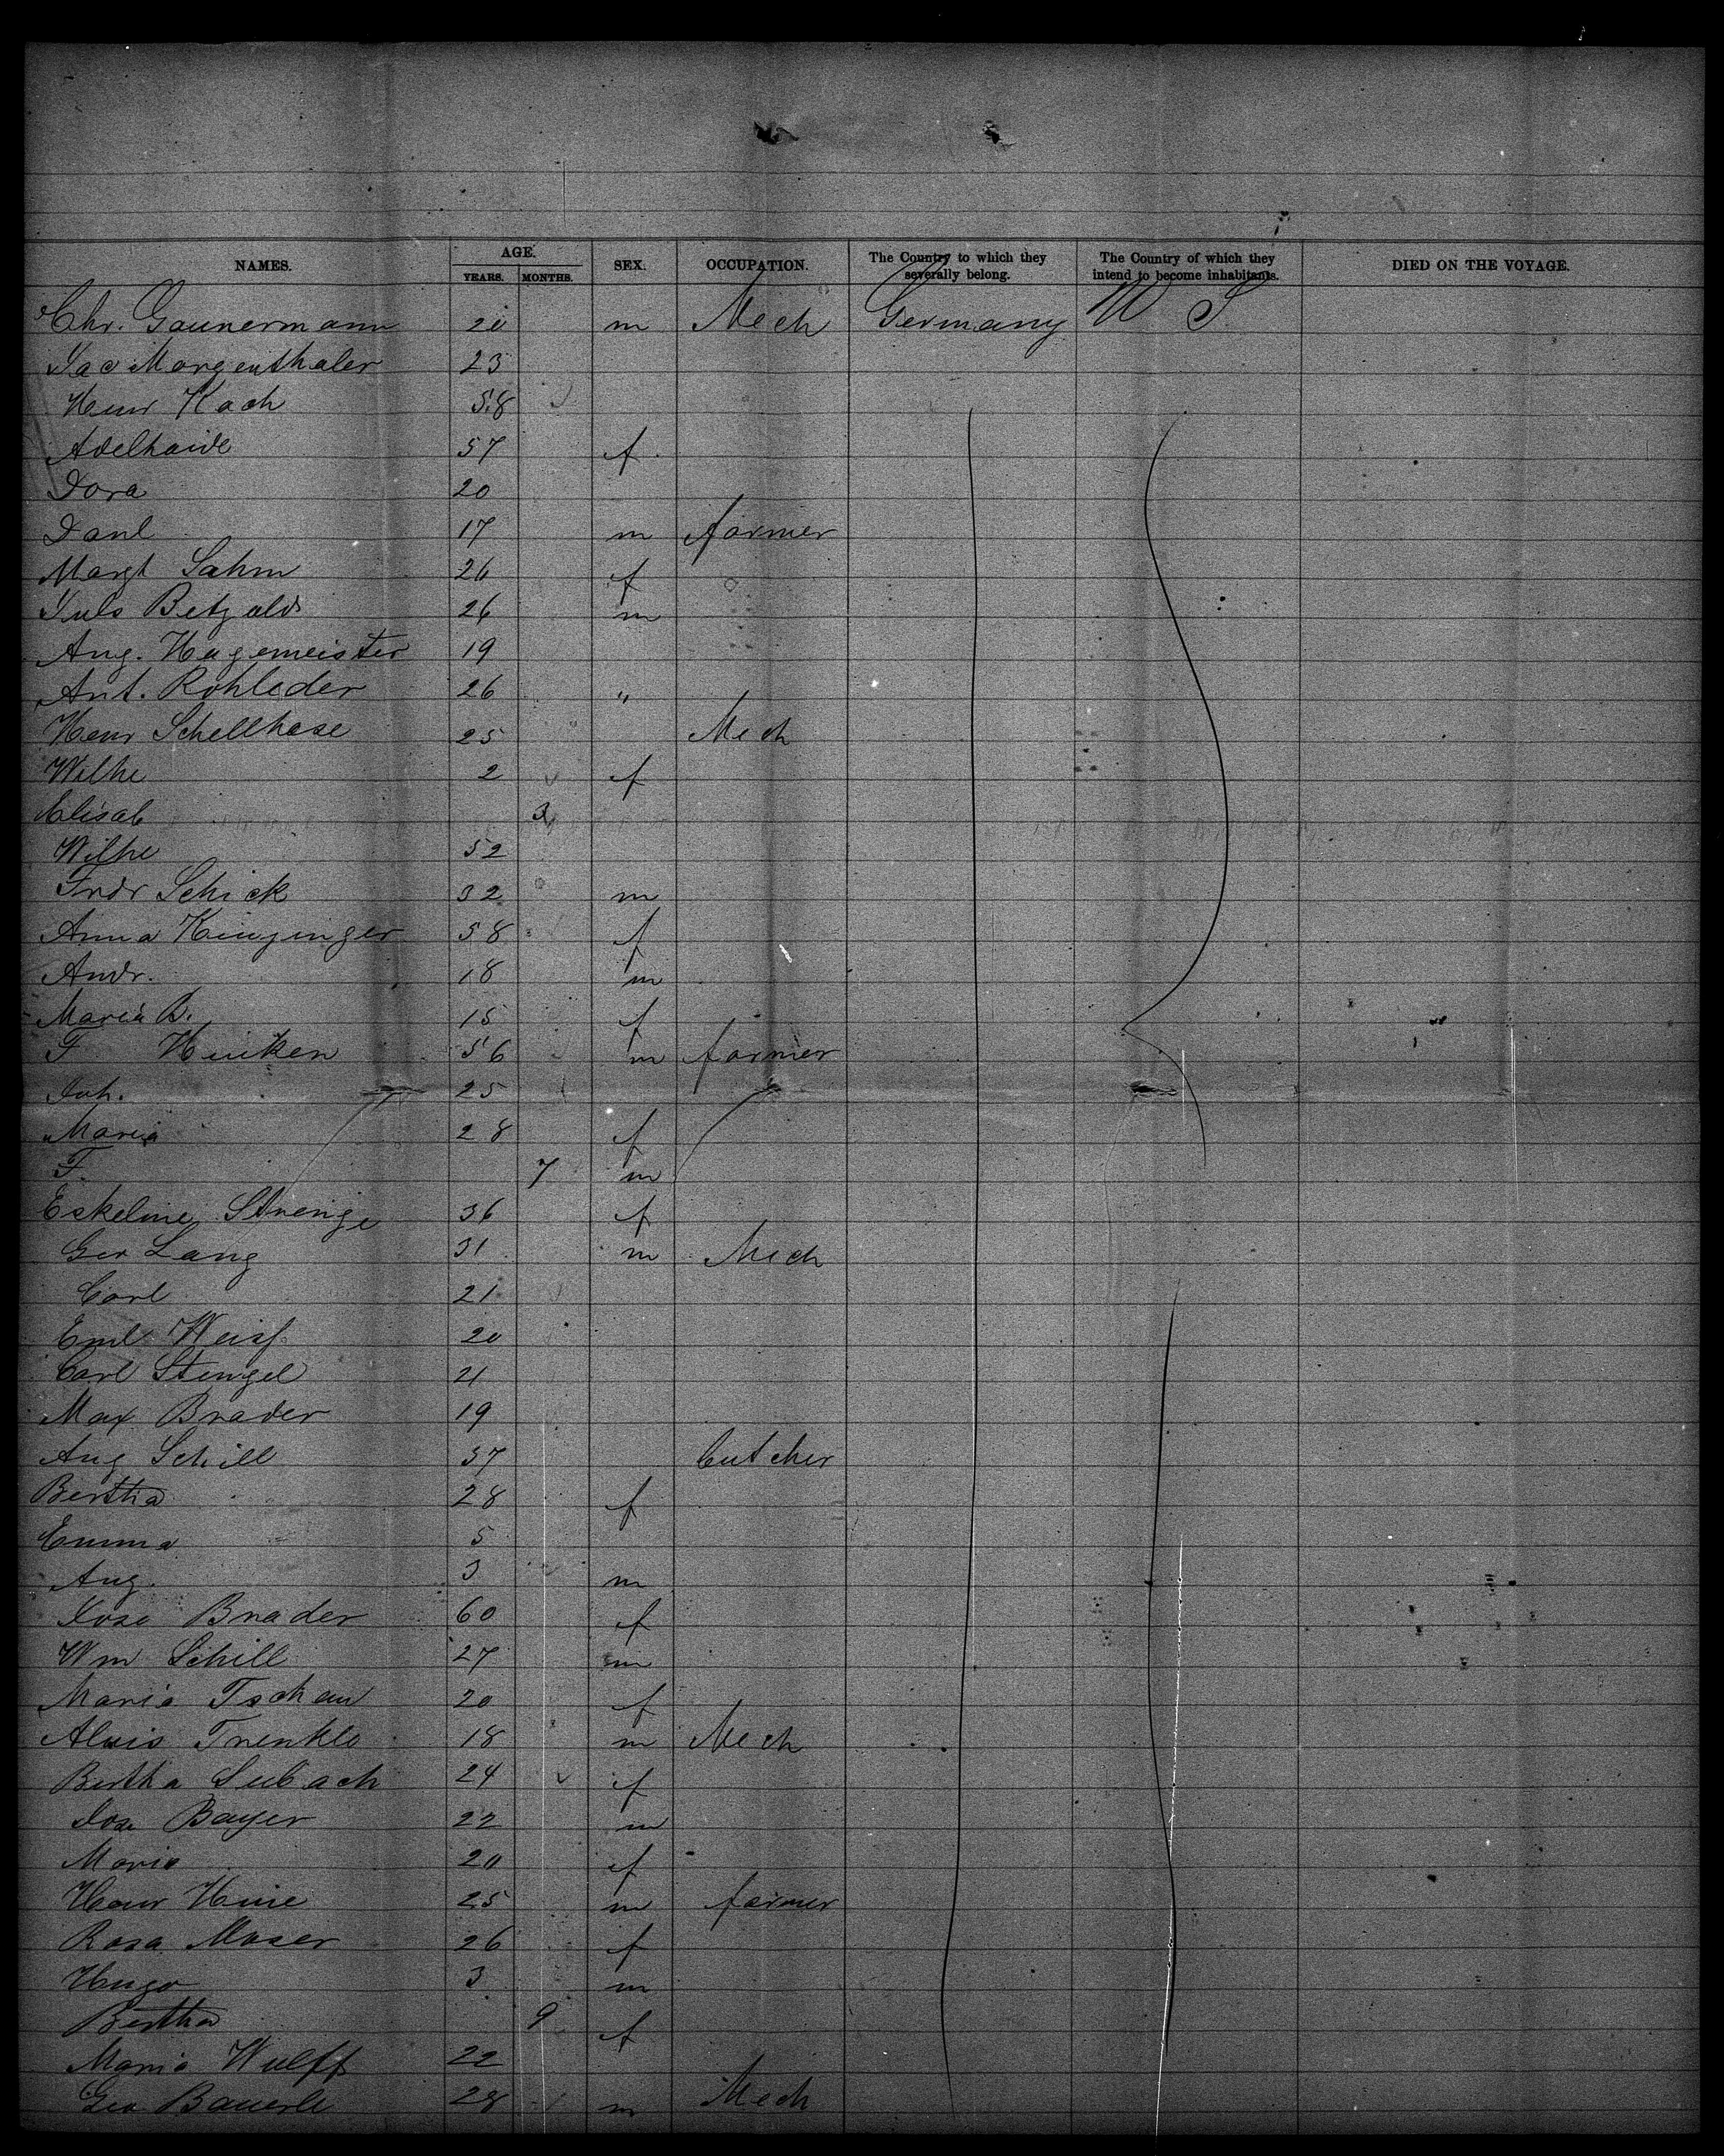 NAMES. AGE. YEARS. MONTHS. SEX. OCCUPATION. The Country to which they severally belong. The Country of which they intend to become inhabitants. DIED ON THE VOYAGE.
Chr. Gaunermann 20 m Mech Germany U S
Jac Morgenthaler 23
Henr Koch 58
Adelhaide 57 f
Dora 20
Danl 17 m farmer
Margt Sahm 26 f
Juls Betzold 26 m
Aug. Hagemeister 19
Ant. Rohleder 26 "
Henr Schellhase 25 Mech
Wilhe 2 f
Elisab 3
Wilhe 52
Frdr Schick 32 m
Anna Kinzinger 58 f
Andr. 18 m
Maria B. 15 f
F Hinken 56 m farmer
Joh. 25
Maria 28 f
F 7 m
Eskeline 36 f
Geo Lang 31 m Mech
Carl 21
Emil Weiss 20
Carl Stengel 21
Max Brader 19
Aug Schill 37 butcher
Bertha 28 f
Emma 5
Aug. 3 m
Josa Brader 60 f
Wm Schill 27 m
Maria 20 f
Alois Trenkle 18 m Mech
Bertha Subach 24 f
Jos Bayer 22 m
Maria 20 f
Henr Hine 25 m farmer
Rosa Moser 26 f
Hugo 3 m
Bertha 9 f
Maria Wulff 22
Geo Bauerle 28 m Mech